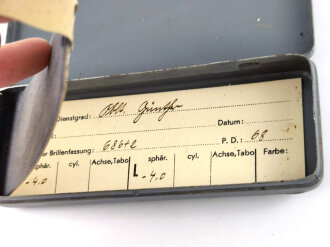 Dienstgrad: Oblt. Günther
Datum:
Brillenfassung: 686+2 P.D.: 68
sphär. cyl. Achse,Tabo L sphär. cyl. Achse,Tabo Farbe:
-4,0 -4,0